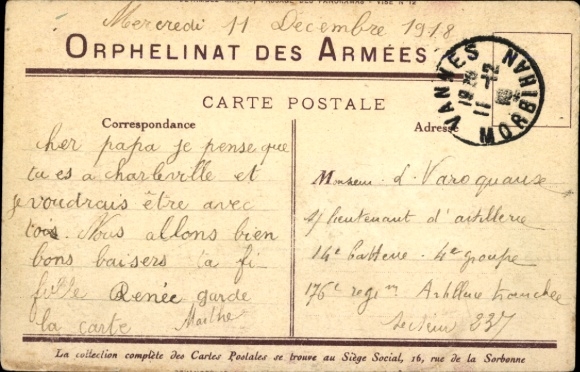 Mercredi 11 Décembre 1918
ORPHELINAT DES ARMÉES
CARTE POSTALE
Correspondance
cher papa je pense que
tu es a charleville et
je voudrais être avec
toi. Nous allons bien
bons baisers ta fi
fille Renée garde
la carte Marthe
Adresse
VANNES
MORBIHAN
11 -12
Monsieur L. Varoquause
s/lieutenant d'artillerie
14e batterie - 4e groupe
176e regim Artillerie tranchée
Secteur 237
La collection complète des Cartes Postales se trouve au Siège Social, 16, rue de la Sorbonne